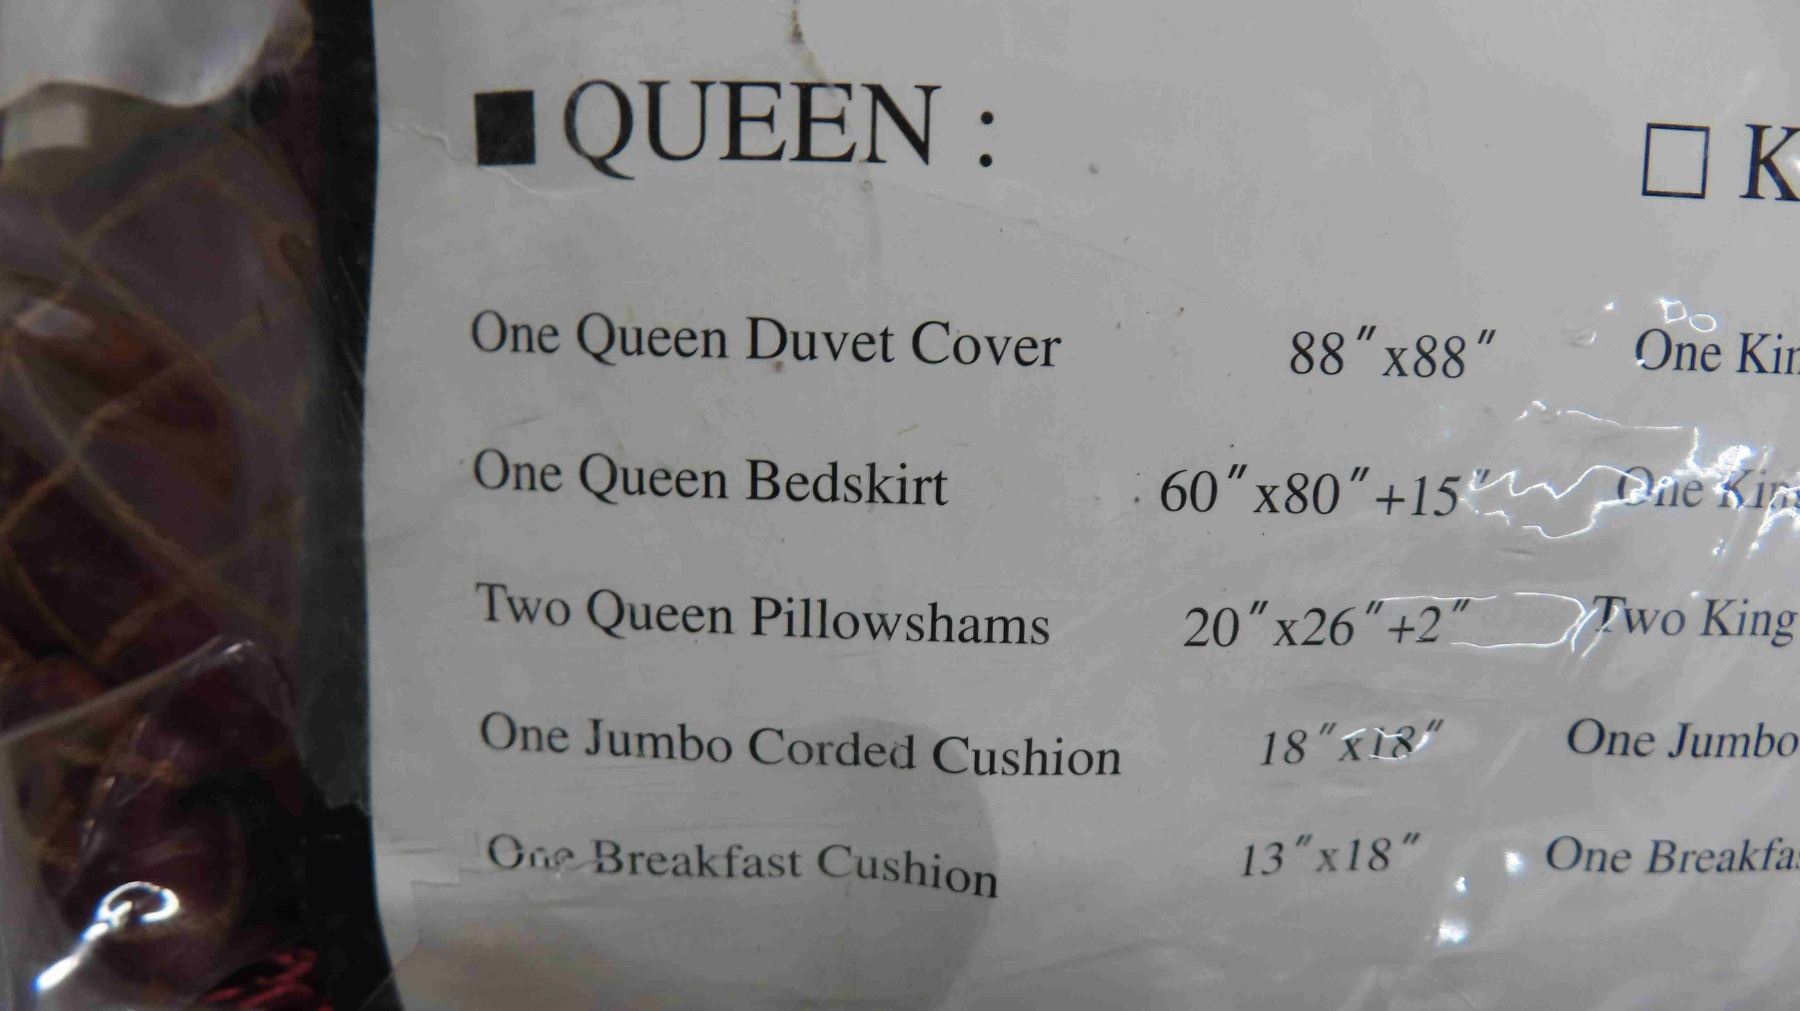 ■ QUEEN : □ K
One Queen Duvet Cover 88"x88" One Kin
One Queen Bedskirt 60"x80"+15" One Kin
Two Queen Pillowshams 20"x26"+2" Two King
One Jumbo Corded Cushion 18"x18" One Jumbo
One Breakfast Cushion 13"x18" One Breakfas